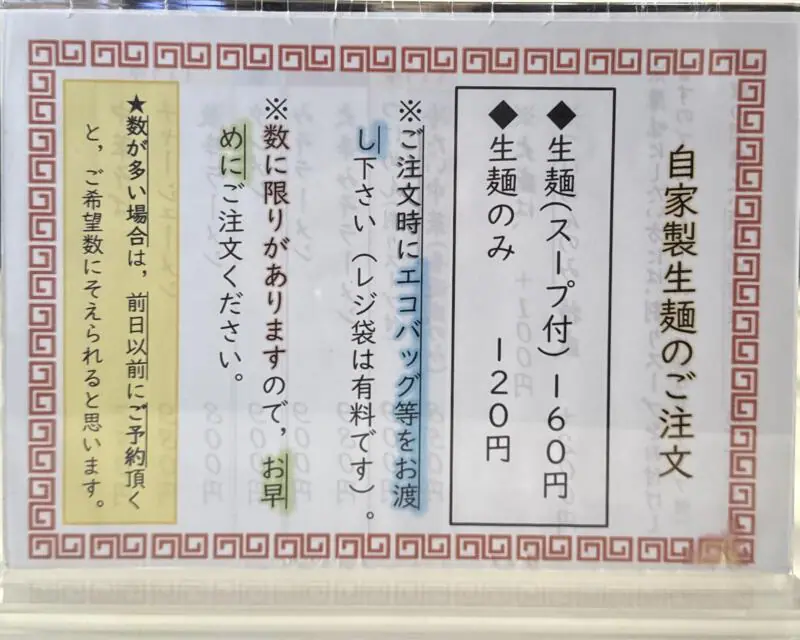 自家製生麺のご注文
◆生麺(スープ付)160円
◆生麺のみ 120円
※ご注文時にエコバッグ等をお渡
し下さい(レジ袋は有料です)。
※数に限りがありますので、お早
めにご注文ください。
★数が多い場合は、前日以前にご予約頂く
と、ご希望数にそえられると思います。